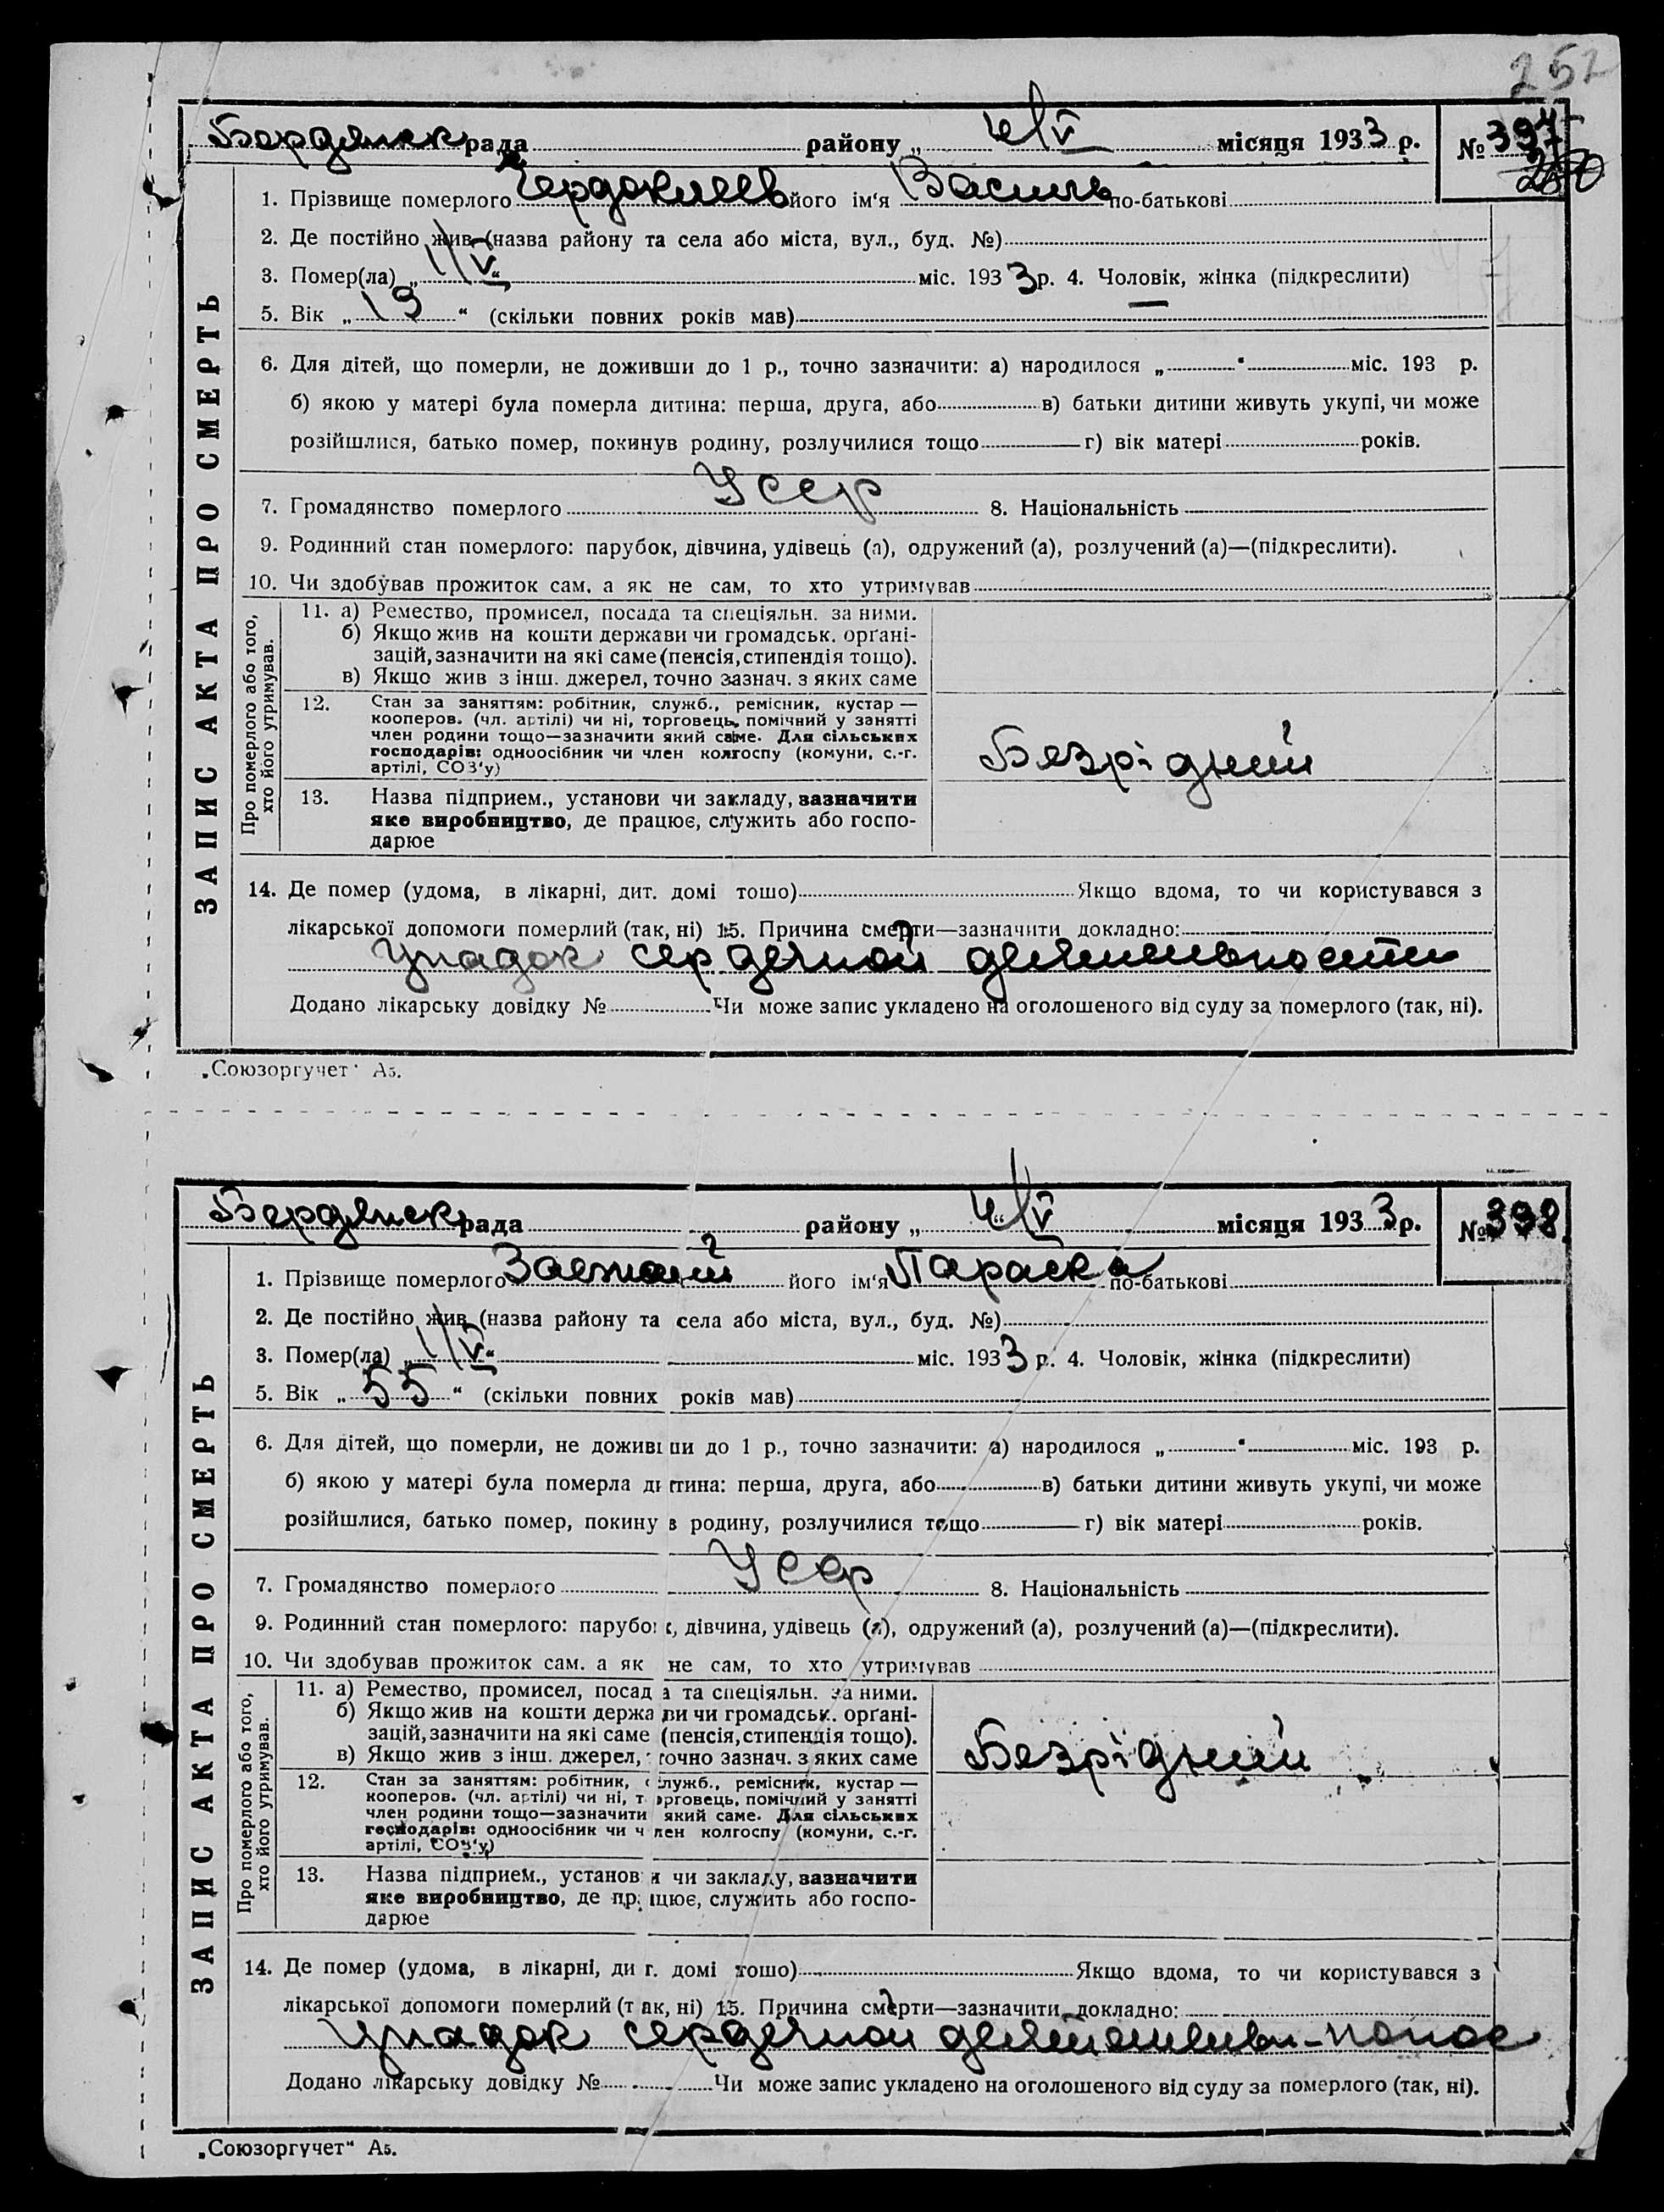 252
Бердянск рада районy „ 4/V місяця 1933 р. № 397
1. Прізвище померлого його ім'я Василь по-батькові
2. Де постійно жив (назва району та села або міста, вул., буд. №)
3. Помер(ла) „ 1/V “ міс. 1933 р. 4. Чоловік, жінка (підкреслити)
5. Вік „ 19 “ (скільки повних років мав)
6. Для дітей, що померли, не доживши до 1 р., точно зазначити: а) народилося „ “ міс. 193 р.
б) якою у матері була померла дитина: перша, друга, або в) батьки дитини живуть укупі, чи може
розійшлися, батько помер, покинув родину, розлучилися тощо г) вік матері років.
7. Громадянство померлого Усср 8. Національність
9. Родинний стан померлого: парубок, дівчина, удівець (а), одружений (а), розлучений (а)—(підкреслити).
10. Чи здобував прожиток сам, а як не сам, то хто утримував
ЗАПИС АКТА ПРО СМЕРТЬ
Про померлого або того,
хто його утримував.
11. а) Ремество, промисел, посада та спеціяльн. за ними.
б) Якщо жив на кошти держави чи громадськ. органі-
зацій, зазначити на які саме (пенсія, стипендія тощо).
в) Якщо жив з інш. джерел, точно зазнач. з яких саме
12. Стан за заняттям: робітник, служб., ремісник, кустар —
кооперов. (чл. артілі) чи ні, торговець, помічний у занятті
член родини тощо—зазначити який саме. Для сільських
господарів: одноосібник чи член колгоспу (комуни, с.-г.
артілі, СОЗ'у)
Безрідний
13. Назва підприєм., установи чи закладу, зазначити
яке виробництво, де працює, служить або госпо-
дарює
14. Де помер (удома, в лікарні, дит. домі тощо) Якщо вдома, то чи користувався з
лікарської допомоги померлий (так, ні) 15. Причина смерти—зазначити докладно:
Упадок сердечной деятельности
Додано лікарську довідку № Чи може запис укладено на оголошеного від суду за померлого (так, ні).
„Союзоргучет“ А5.
Бердянск рада району „ 4/V місяця 1933 р. № 398
1. Прізвище померлого його ім'я Параска по-батькові
2. Де постійно жив (назва району та села або міста, вул., буд. №)
3. Помер(ла) „ 1/V “ міс. 1933 р. 4. Чоловік, жінка (підкреслити)
5. Вік „ 55 “ (скільки повних років мав)
6. Для дітей, що померли, не доживши до 1 р., точно зазначити: а) народилося „ “ міс. 193 р.
б) якою у матері була померла дитина: перша, друга, або в) батьки дитини живуть укупі, чи може
розійшлися, батько помер, покинув родину, розлучилися тощо г) вік матері років.
7. Громадянство померлого Усср 8. Національність
9. Родинний стан померлого: парубок, дівчина, удівець (а), одружений (а), розлучений (а)—(підкреслити).
10. Чи здобував прожиток сам, а як не сам, то хто утримував
ЗАПИС АКТА ПРО СМЕРТЬ
Про померлого або того,
хто його утримував.
11. а) Ремество, промисел, посада та спеціяльн. за ними.
б) Якщо жив на кошти держави чи громадськ. органі-
зацій, зазначити на які саме (пенсія, стипендія тощо).
в) Якщо жив з інш. джерел, точно зазнач. з яких саме
Безрідний
12. Стан за заняттям: робітник, служб., ремісник, кустар —
кооперов. (чл. артілі) чи ні, торговець, помічний у занятті
член родини тощо—зазначити який саме. Для сільських
господарів: одноосібник чи член колгоспу (комуни, с.-г.
артілі, СОЗ'у)
13. Назва підприєм., установи чи закладу, зазначити
яке виробництво, де працює, служить або госпо-
дарює
14. Де помер (удома, в лікарні, дит. домі тощо) Якщо вдома, то чи користувався з
лікарської допомоги померлий (так, ні) 15. Причина смерти—зазначити докладно:
Упадок сердечной понос
Додано лікарську довідку № Чи може запис укладено на оголошеного від суду за померлого (так, ні).
„Союзоргучет“ А5.